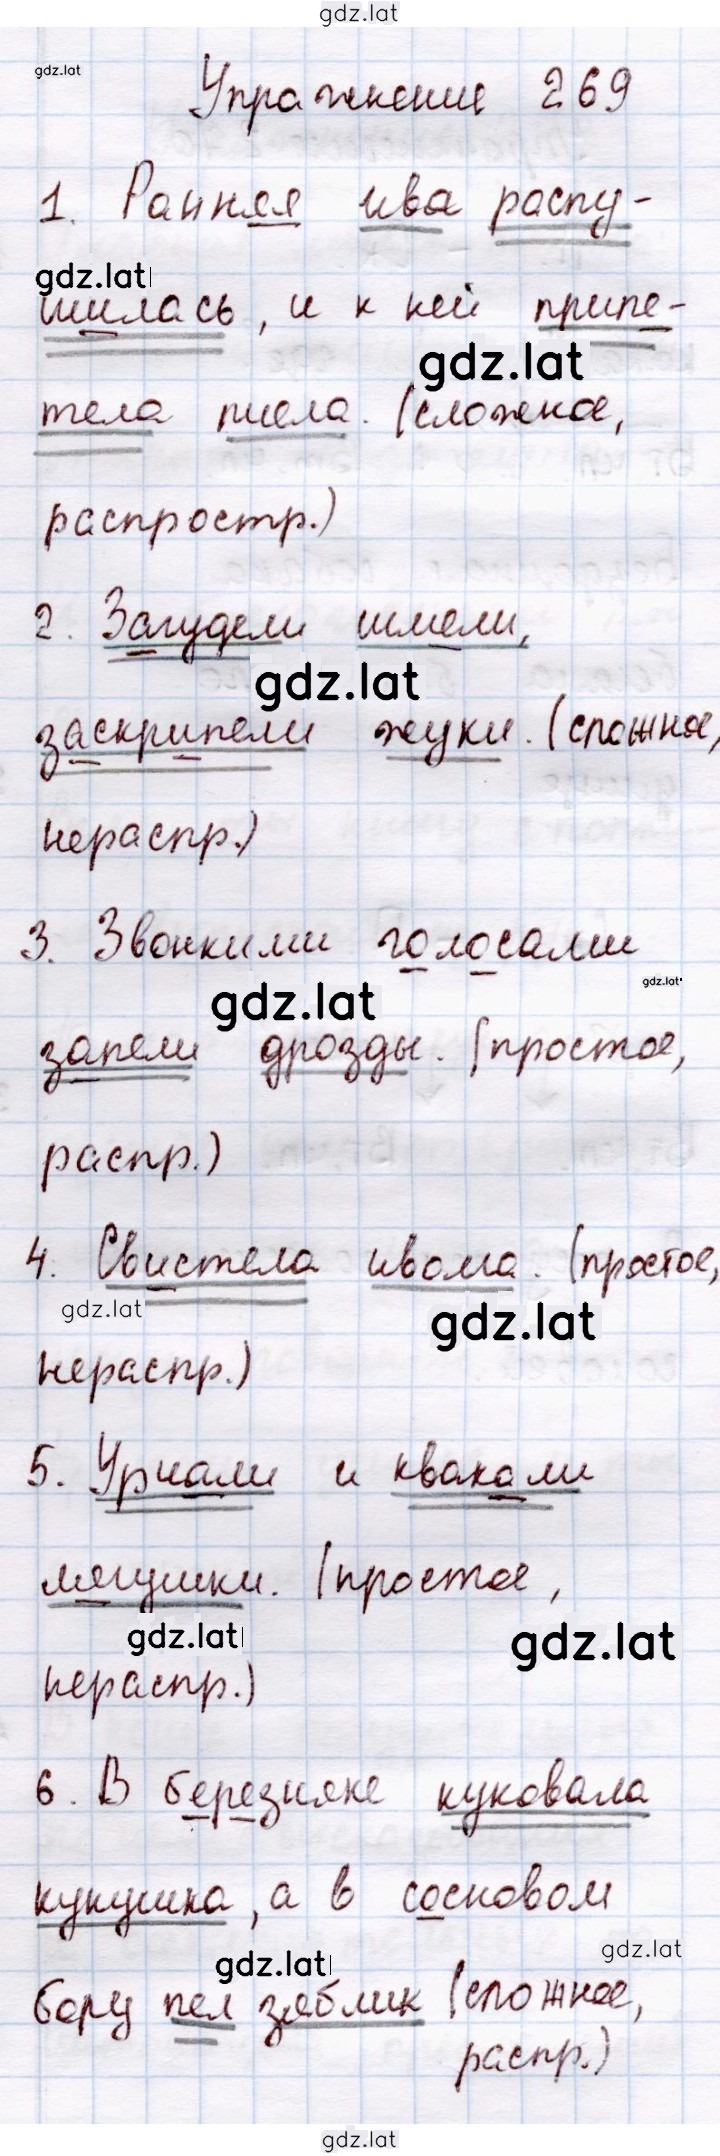 gdz.lat
gdz.lat
Упражнение 269
1. Ранняя ива распу-
gdz.lat
шилась, и к ней приле-
gdz.lat
тела пчела. (сложное,
распростр.)
2. Загудели шмели,
gdz.lat
заскрипели жуки. (сложное,
нераспр.)
3. Звонкими голосами
gdz.lat
gdz.lat
запели дрозды. (простое,
распр.)
4. Свистела иволга. (простое,
gdz.lat
gdz.lat
нераспр.)
5. Урчали и квакали
лягушки. (простое,
gdz.lat
gdz.lat
нераспр.)
6. В березняке куковала
кукушка, а в сосновом
gdz.lat
gdz.lat
бору пел зяблик (сложное,
распр.)
gdz.lat